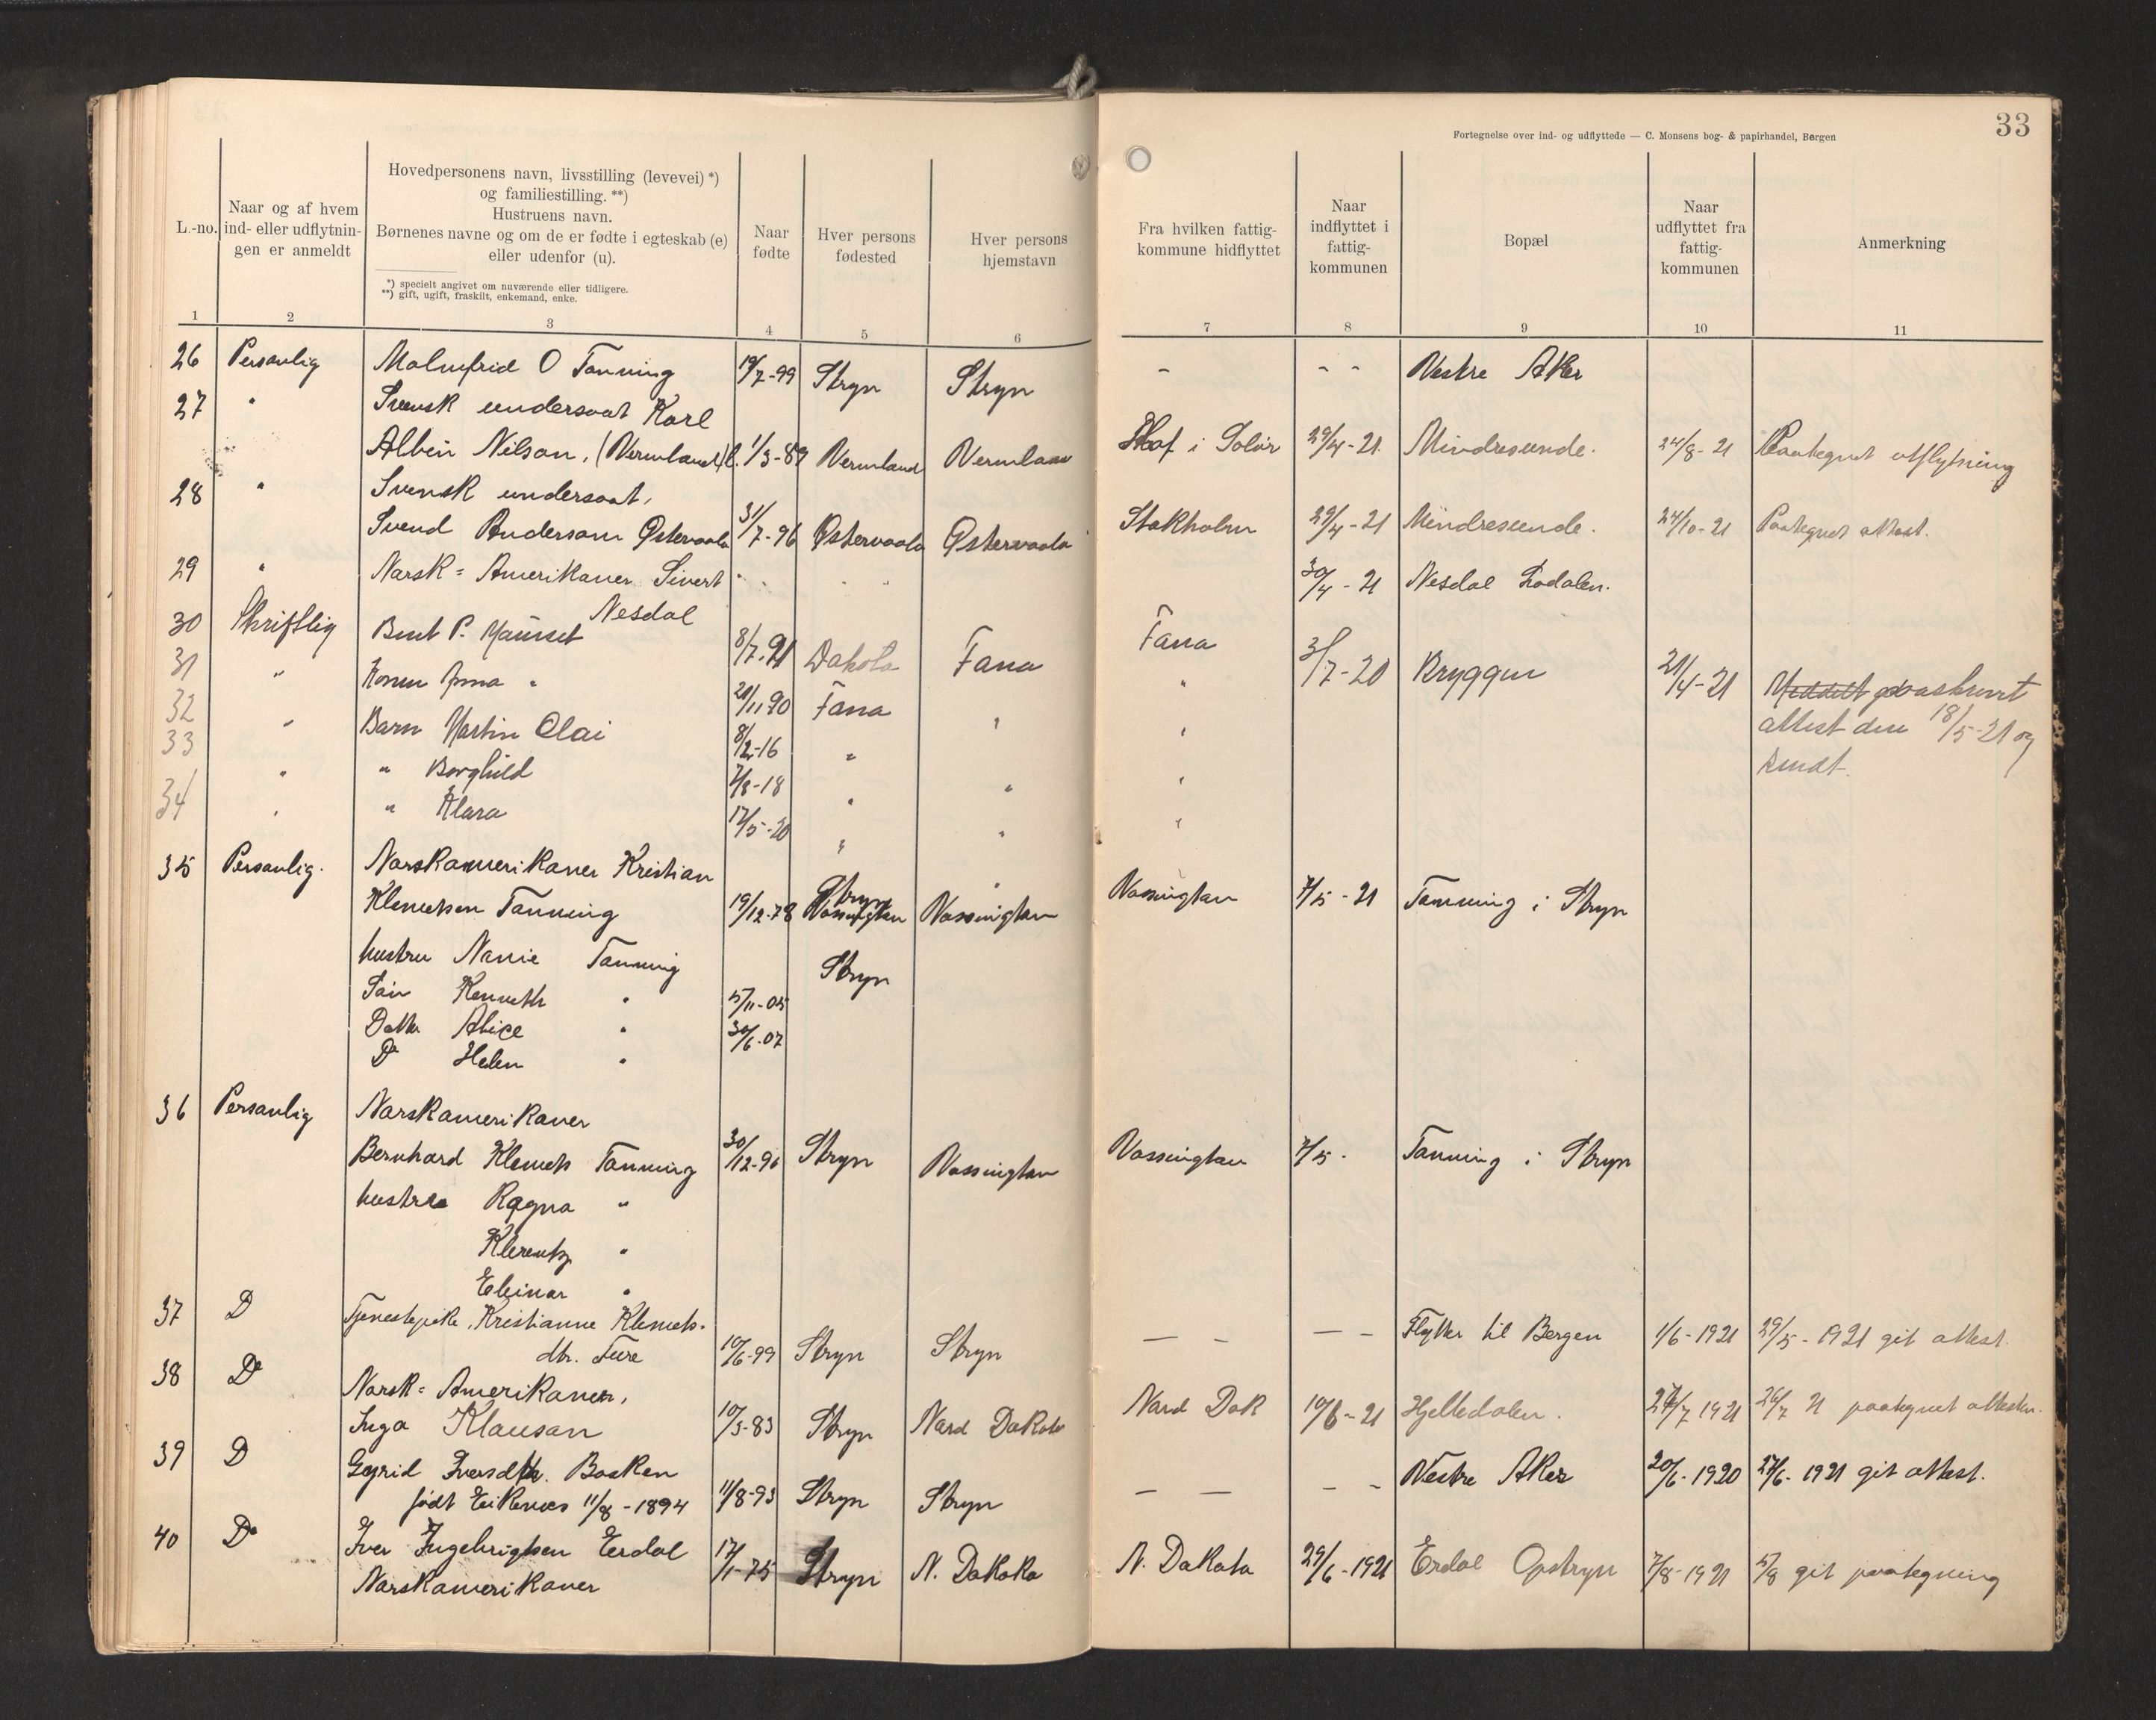 33
Fortegnelse over ind- og udflyttede — C. Monsens bog- & papirhandel, Bergen
L.-no.
Naar og af hvem
ind- eller udflytnin-
gen er anmeldt
Hovedpersonens navn, livsstilling (levevei) *)
og familiestilling. **)
Hustruens navn.
Børnenes navne og om de er fødte i egteskab (e)
eller udenfor (u).
*) specielt angivet om nuværende eller tidligere.
**) gift, ugift, fraskilt, enkemand, enke.
Naar
fødte
Hver persons
fødested
Hver persons
hjemstavn
Fra hvilken fattig-
kommune hidflyttet
Naar
indflyttet i
fattig-
kommunen
Bopæl
Naar
udflyttet fra
fattig-
kommunen
Anmerkning
1 2 3 4 5 6 7 8 9 10 11
26 Personlig Malmfrid O Tonning 19/7-99 Stryn Stryn - - - Vestre Aker
27 " Svensk undersaat Karl
Albin Nilson, (Vermland) 1/3-89 Vermland Vermland Hof i Solør 29/4-21. Mindresunde. 24/8-21 Paategnet utflytning
28 " Svensk undersaat,
Svend Anderson Østervaala 31/7-96 Østervaala Østervaala Stokholm 29/4-21 Mindresunde. 24/10-21 Paategnet attest.
29 " Norsk=Amerikaner Sivert 30/4-21 Nesdal Lodalen.
Nesdal
30 Skriftlig Bent P. 8/7.91 Dakota Fana Fana 31/7-20 Bryggen 21/4-21 attest den 18/5-21 og
sendt.
31 " Konen Anna " 20/11 90 Fana " "
32 " Barn Martin Olai 8/2-16 " " "
33 " " Borghild 7/8-18 " " "
34 " " Klara 17/5-20 " " "
35 Personlig. Norskamerikaner Kristian
Klemetsen Tonning 19/12-78 Stryn Vassington Vassington Vassington 7/5-21 Tonning i Stryn
hustru Nanie Tonning Stryn
Søn Kenneth " 5/11-05
Datter Alice " 30/6-07
Do Helen "
36 Personlig Norskamerikaner
Bernhard Klemets Tonning 30/12-96 Stryn Vassington Vassington 7/5. Tonning i Stryn
hustru Ragna "
Klemets "
Eleinar "
37 D Tjenestepike, Kristianne Klemets-
dtr. Ture 10/6-99 Stryn Stryn — - — - Flytter til Bergen 1/6-1921 29/5-1921 git attest.
38 Do Norsk=Amerikaner,
Inga Klausan 10/3-83 Stryn Nord Dakota Nord Dak 10/6-21 Hjelledalen. 27/7 1921 26/7 21 paategnet attesten.
39 D Gyrid Iversdtr. Bosken
født Eikenes 11/8-1894 11/8-93 Stryn Stryn — — - - Vestre Aker 20/6-1920 27/6-1921 git attest.
40 Do Iver Ingebrigtsen Erdal 17/1-75 Stryn N. Dakoka N. Dakota 29/6-1921 Erdal Opstryn 7/8-1921 5/8 git paategning
Norskamerikaner